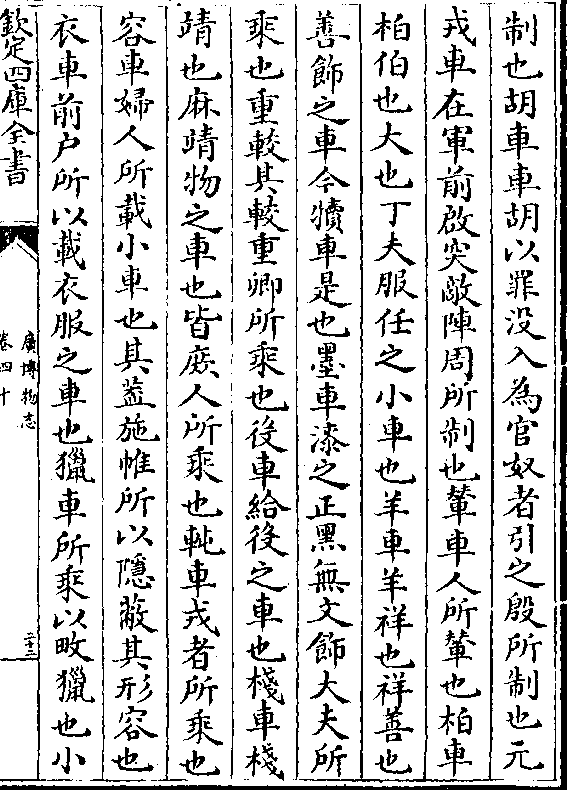 制也胡車車胡以罪没入為官奴者引之殷所制也元
戎車在軍前啟突敵陣周所制也輦車人所輦也柏車
柏伯也大也丁夫服任之小車也羊車羊祥也祥善也
善飾之車今犢車是也墨車漆之正黑無文飾大夫所
乘也重較其較重卿所乘也役車給役之車也棧車棧
靖也麻靖物之車也皆庶人所乘也軘車戎者所乘也
容車婦人所載小車也其葢施帷所以隱蔽其形容也
衣車前户所以載衣服之車也獵車所乘以畋獵也小
欽定四庫全書
廣博物志
卷四十
二十三